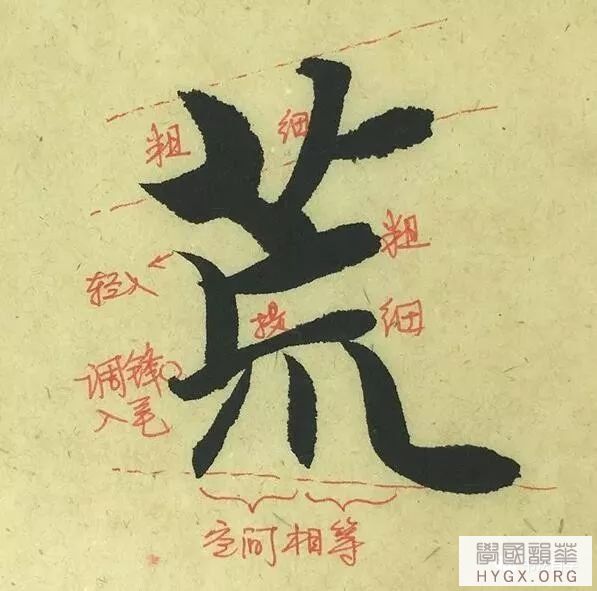 荒
粗 细
粗
轻入
接 细
调锋
入笔
空间相等
學國韻華
HYGX.ORG